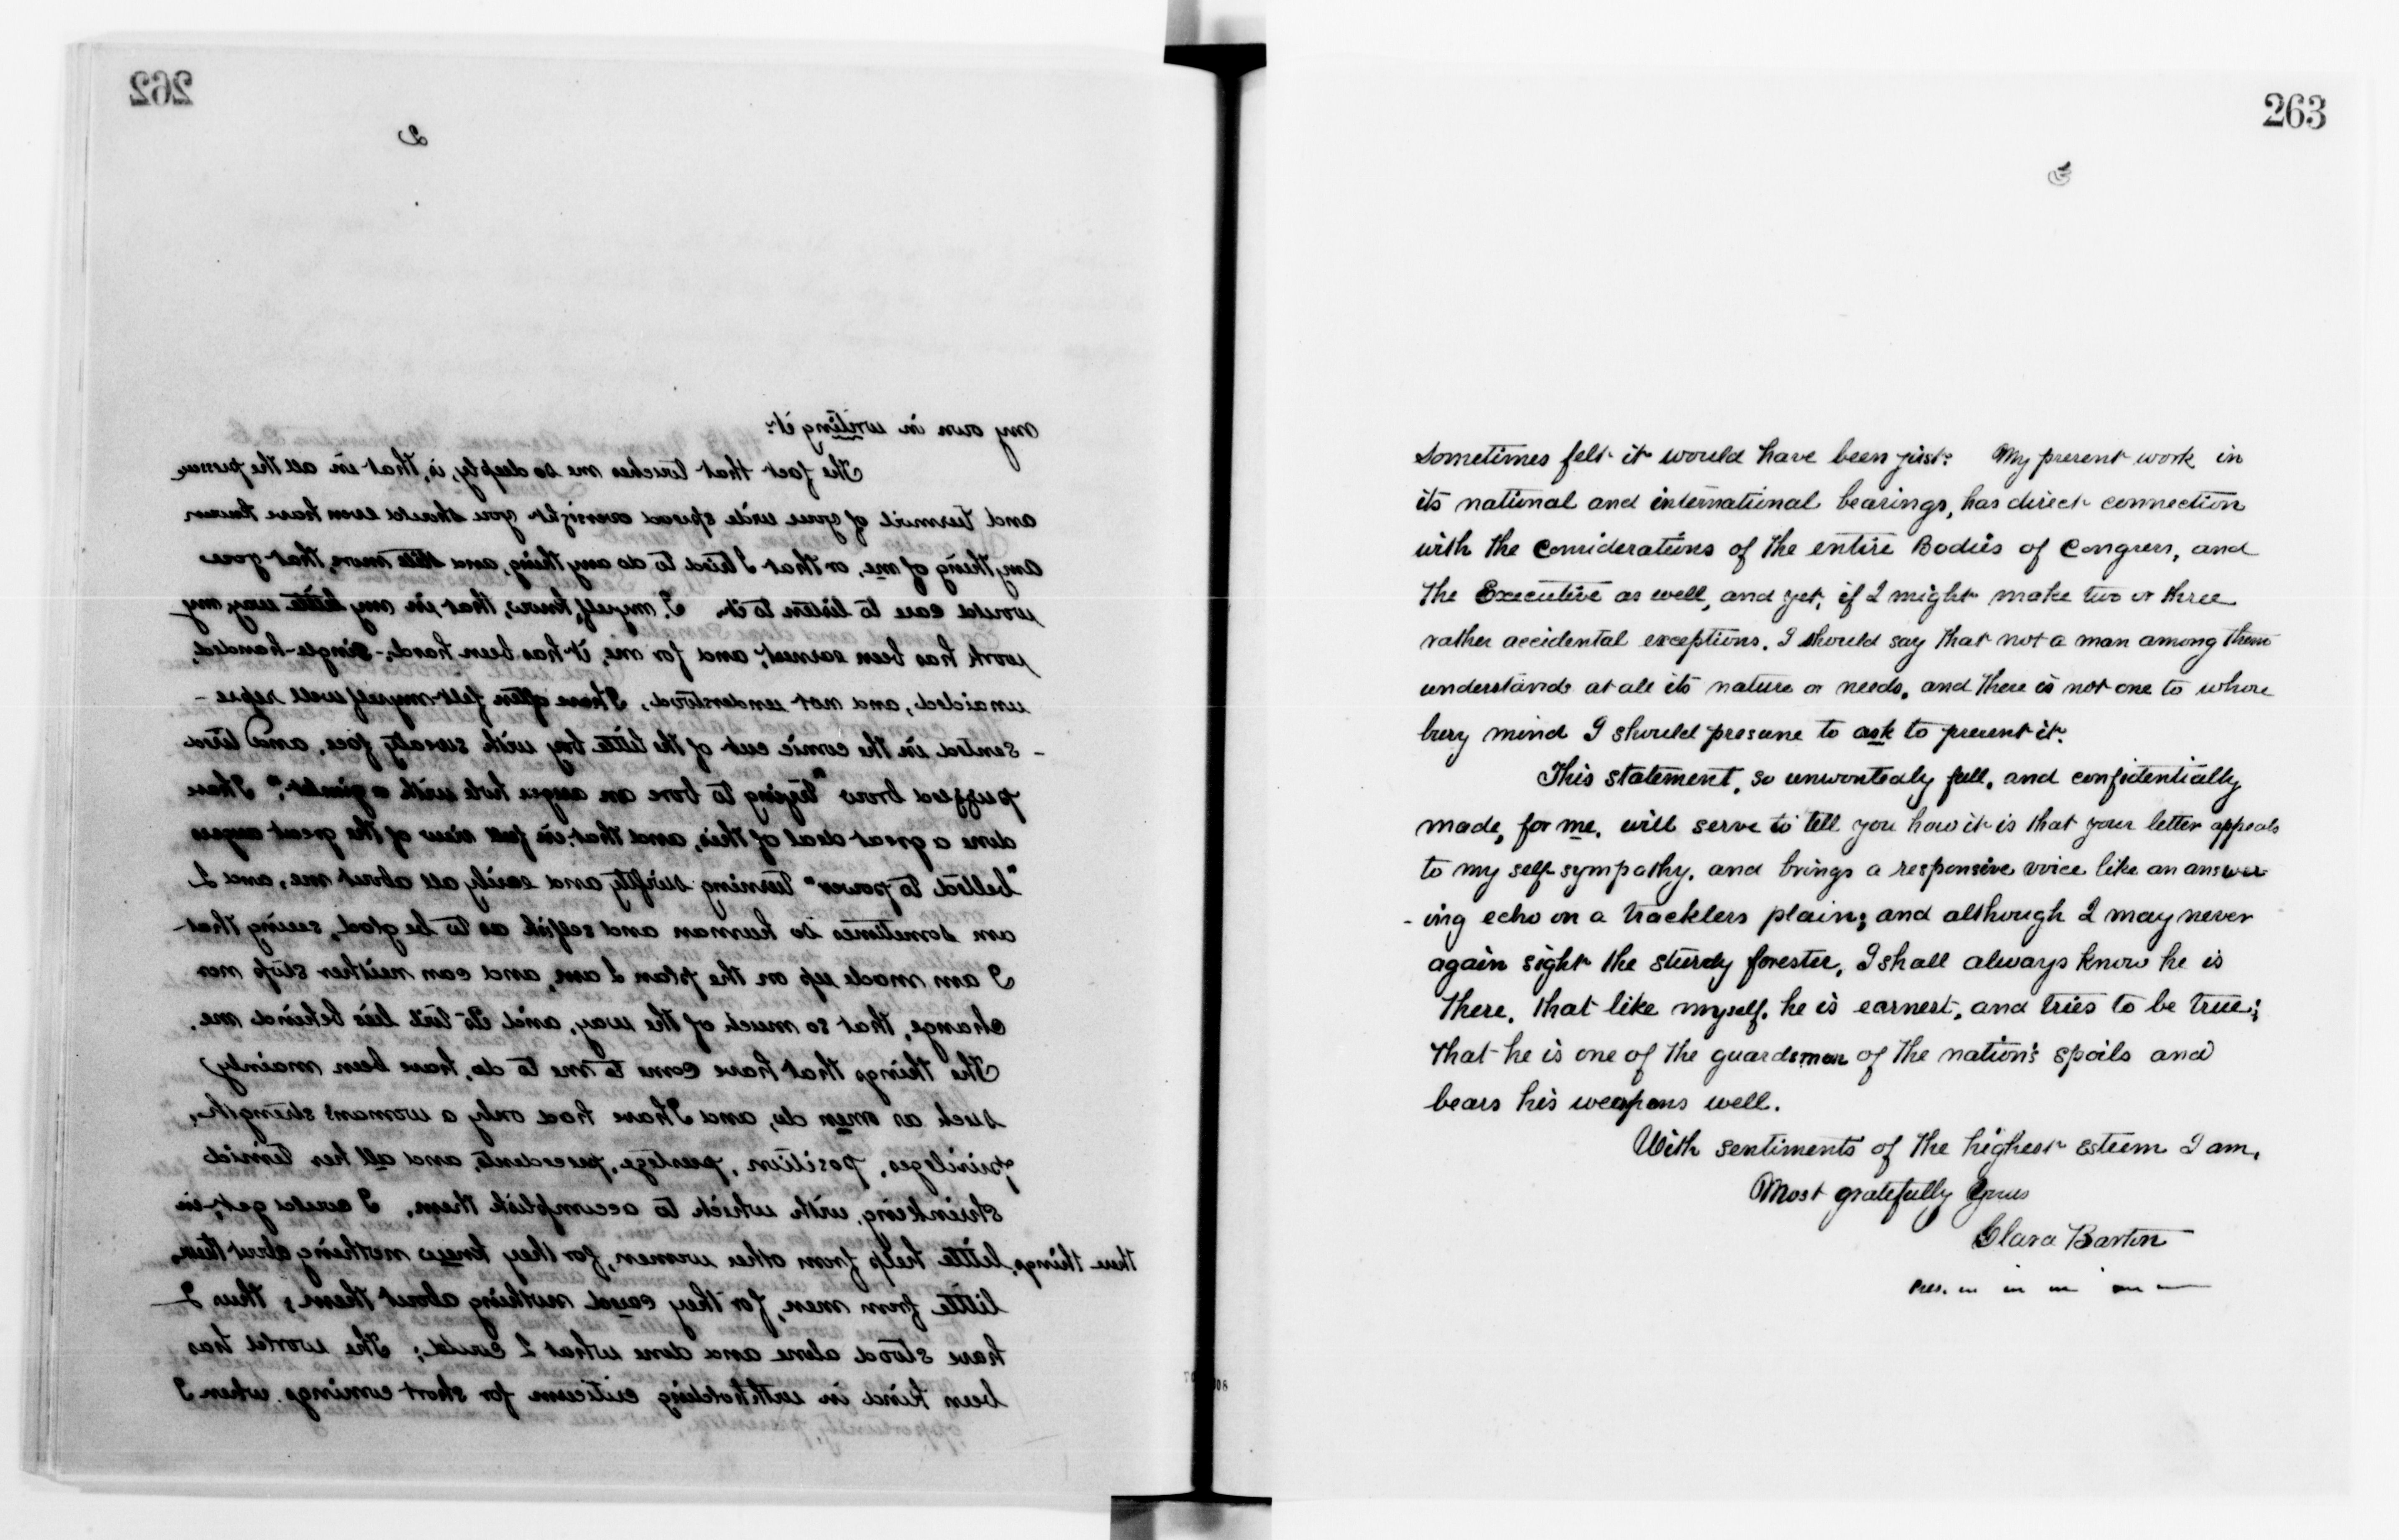 262
2
my own in writing it.
The fact that touches me so deeply, is, that in all the pressure
and turmoil of your wide spread oversight you should even have known
anything of me, or that I tried to do anything, and still more, that you
would care to listen to it. I, myself, know, that in my little way, my
work has been earnest, and, for me, it has been hard, - single-handed,
unaided, and not understood. I have often felt myself well repre -
- sented in the comic cut of the little boy with sweaty face, and tired
puzzled brow "trying to bore an auger hole with a gimlet". I have
done a great deal of this, and that in full view of the great augers
"belted to power" turning swiftly and easily all about me, and I
am sometimes so human and selfish as to be glad, seeing that
I am made up on the plan I am, and can neither stop nor
change, that so much of the way, and its toil lies behind me.
The things that have come to me to do, have been mainly
such as men do, and I have had only a woman's strength,
privileges, position, prestige, precedents, and all her timid
shrinking, with which to accomplish them. I could get, in
these things, little help from other women, for they knew nothing about them,
little from men, for they cared nothing about them; thus I
have stood alone and done what I could; The world has
been kind in withholding criticism for short comings when I
263
3
sometimes felt it would have been just. My present work in
its national and international bearings, has direct connection
with the considerations of the entire Bodies of Congress, and
the Executive as well, and yet, if I might make two or three
rather accidental exceptions, I should say that not a man among them
understands at all its nature or needs, and there is not one to whose
busy mind I should presume to ask to present it.
This statement, so unwontedly full, and confidentially
made, for me, will serve to tell you how it is that your letter appeals
to my self sympathy, and brings a responsive voice like an answer
- ing echo on a trackless plain; and although I may never
again sight the sturdy forester, I shall always know he is
there, that like myself, he is earnest, and tries to be true;
that he is one of the guardsmen of the nation's spoils and
bears his weapons well.
With sentiments of the highest esteem I am,
Most gratefully Yours
Clara Barton
Pres.